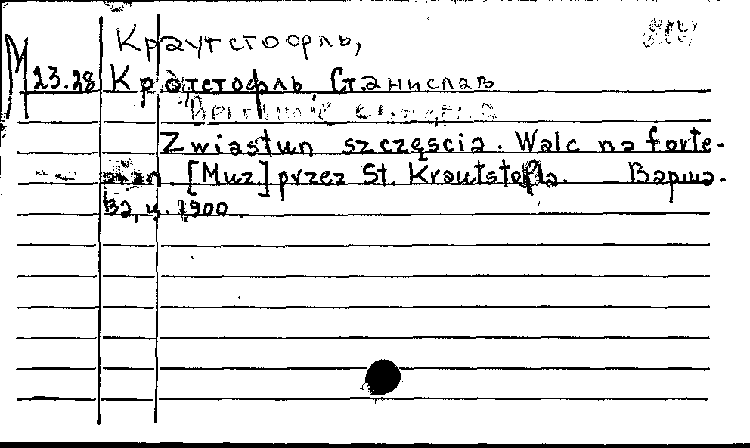 Краутстофль,
М 23.28 Краутстофль, Станислав
Zwiastun szczęscia. Walc na forte-
pian. [Muz.] przez St. Krautstofla. Варша-
ва, ц. 1900.